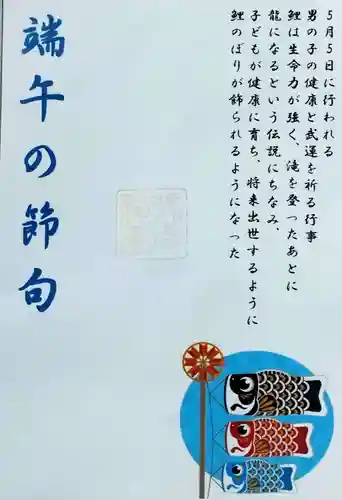 5月5日に行われる
男の子の健康と武運を祈る行事
鯉は生命力が強く、滝を登ったあとに
龍になるという伝説にちなみ、
子どもが健康に育ち、将来出世するように
鯉のぼりが飾られるようになった
端午の節句